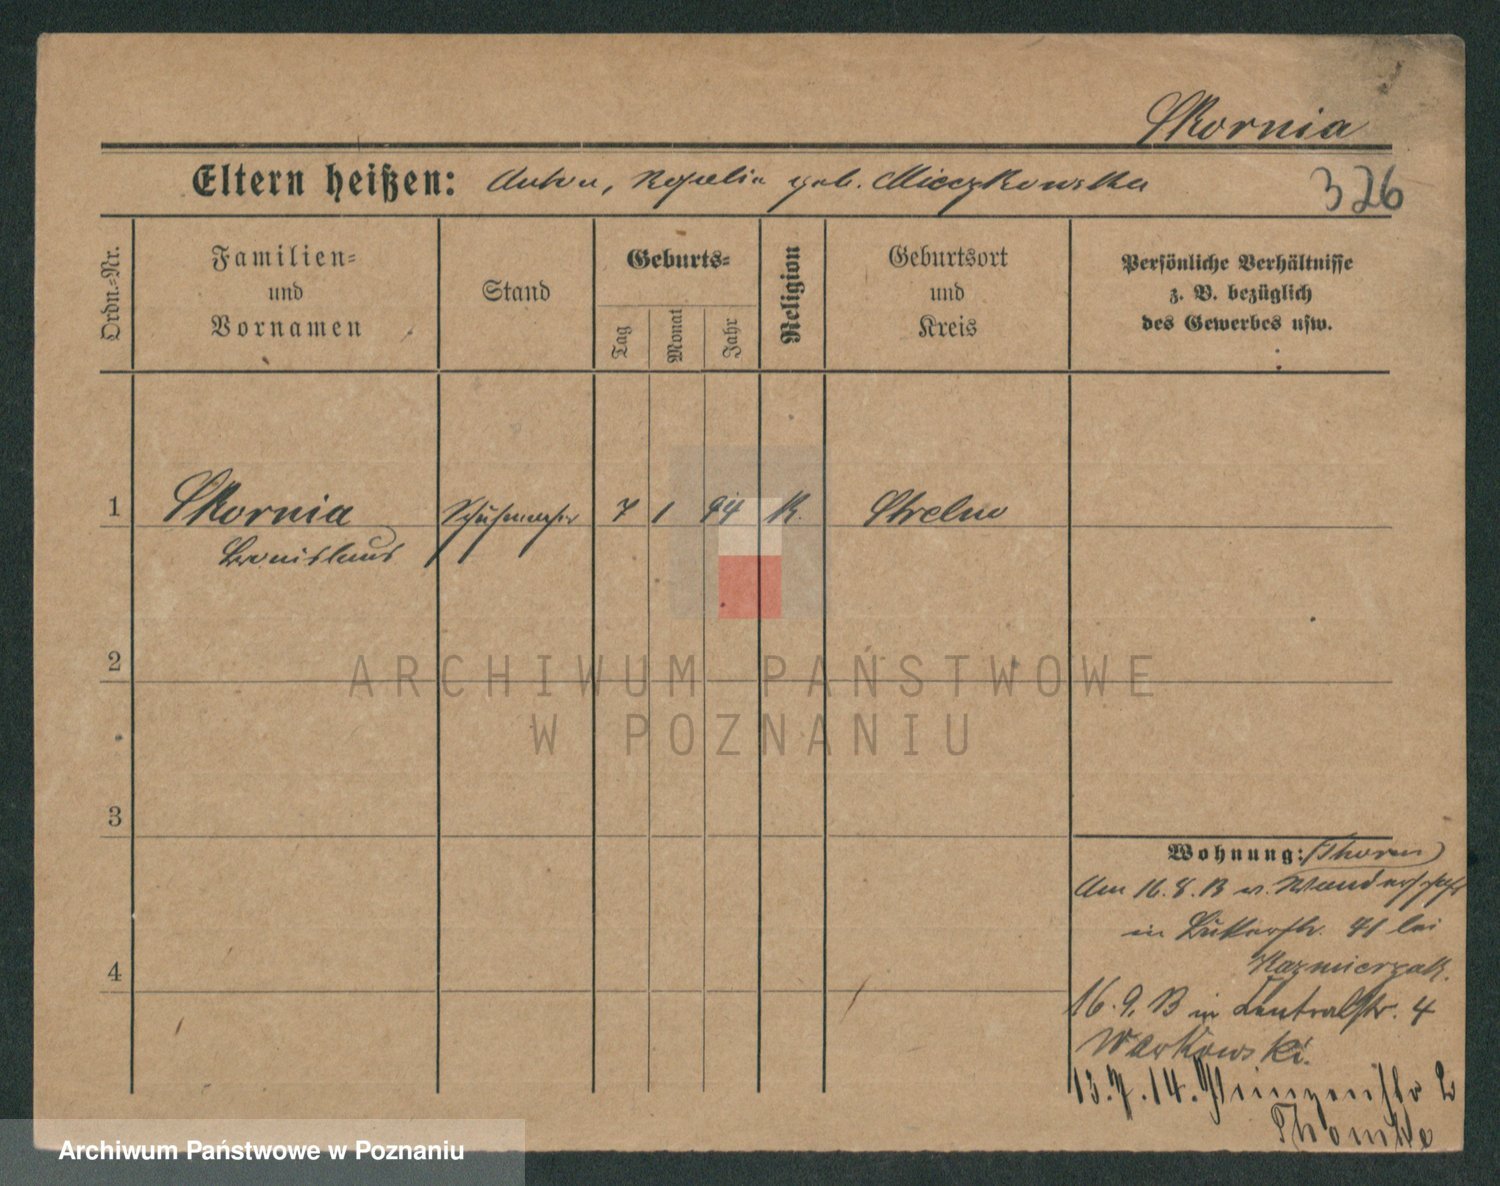 Skornia
Eltern heißen: Anton, Rosalia geb. Mieczkowska
326
Ordn.-Nr.
Familien-
und
Vornamen
Stand
Geburts-
Tag
Monat
Jahr
Religion
Geburtsort
und
Kreis
Persönliche Verhältnisse
z. B. bezüglich
des Gewerbes usw.
1 Skornia Schuhmacher 7 1 94 K. Strelno
Bronislaus
2
3
4
Wohnung: (Thorn)
Am 16.8.13 v. Wanderschaft
in 41 bei
Kazmierzak.
16.9.13 in Zentralstr. 4
Warkowski.
13.7.14. Prinzenstr 2
ARCHIWUM PAŃSTWOWE
W POZNANIU
Archiwum Państwowe w Poznaniu